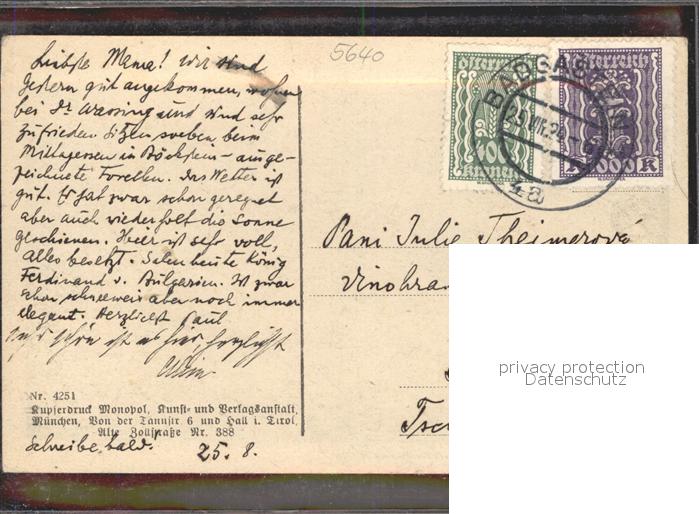 5640
Liebste Mama! Wir sind
gestern gut angekommen, wohnen
bei Dr Wassing und sind sehr
zufrieden. Sitzen soeben beim
Mittagessen in Böckstein – ausge-
zeichnete Forellen. Das Wetter ist
gut. Es hat zwar schon geregnet
aber auch wiederholt die Sonne
geschienen. Hier ist sehr voll,
alles besetzt. Sahen heute König
Ferdinand v. Bulgarien. Ist zwar
schon schneeweis aber noch immer
elegant. Herzlichst Paul
schön ist es hier, herzlichst
Schreibe bald!
25. 8.
Nr. 4251
Kupferdruck Monopol, Kunst- und Verlagsanstalt,
München, Von der Tannstr 6 und Hall i. Tirol,
Alte Zollstraße Nr. 388
österreich
Kronen
Österreich
K 1000 K
BADGASTEIN
Pani Julie Theimerová
Vinohra
Tsc
privacy protection
Datenschutz